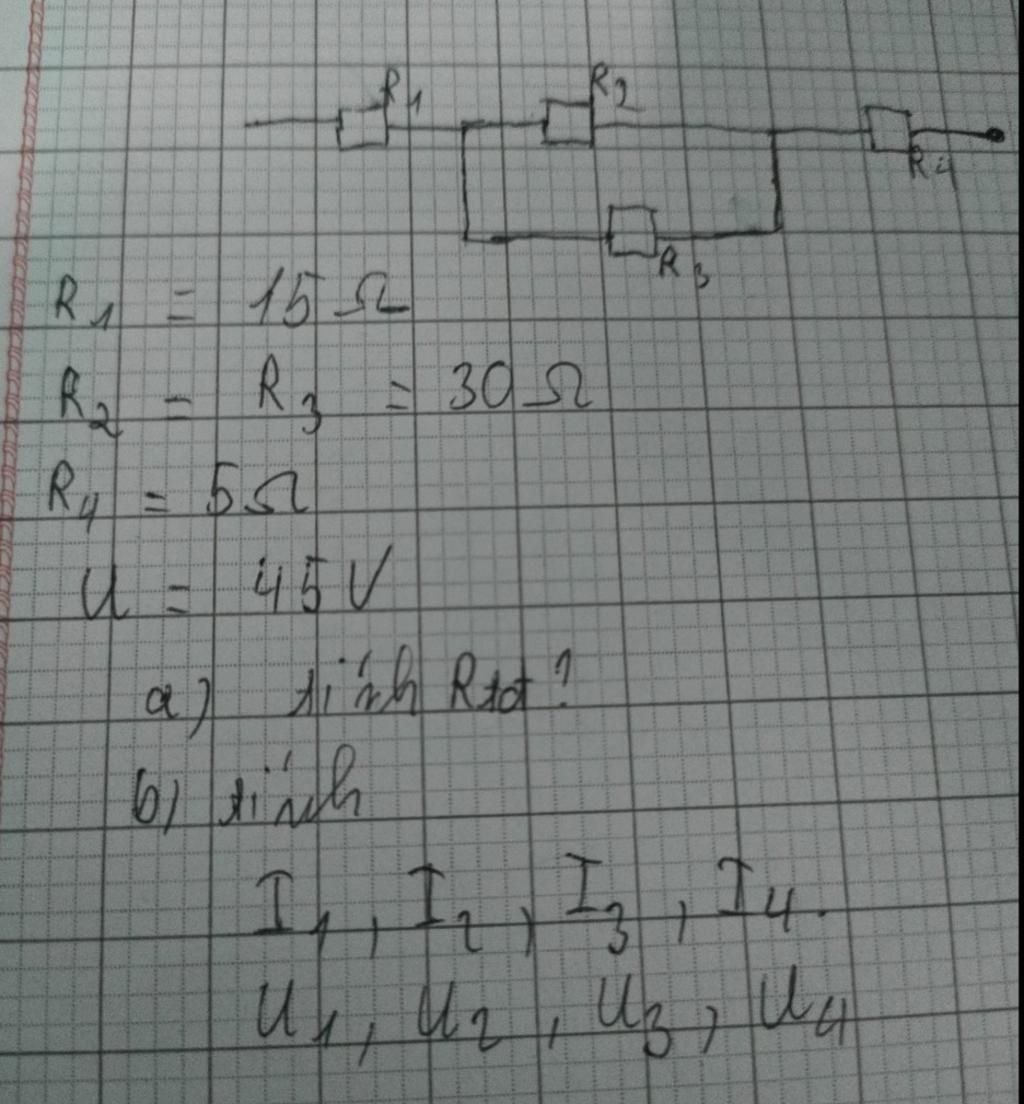 R1
R2
R4
R3
R1 = 15 Ω
R2 = R3 = 30 Ω
R4 = 5 Ω
U = 45 V
a) tính Rtđ?
b) tính
I1, I2, I3, I4.
U1, U2, U3, U4